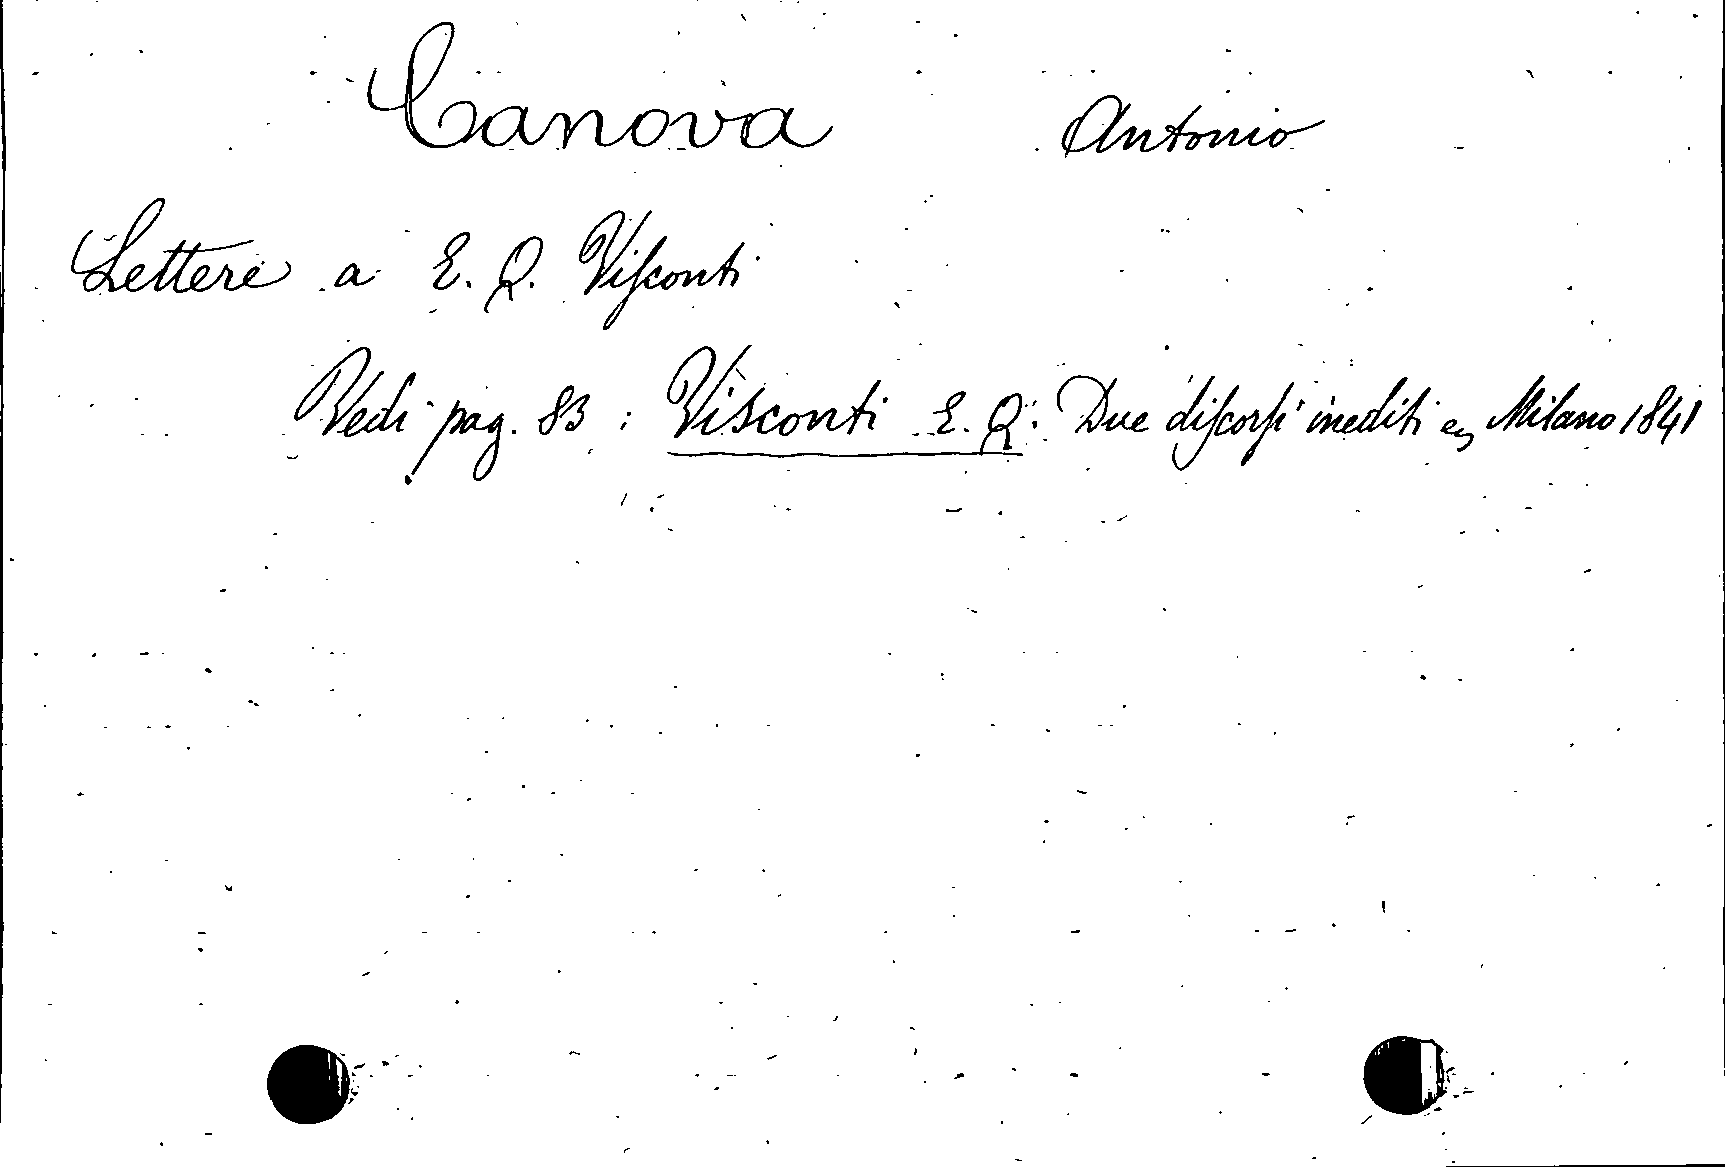 Canova Antonio
Lettere a E. Q. Visconti
Vedi pag. 83 : Visconti E. Q. Due discorsi inediti Milano 1841